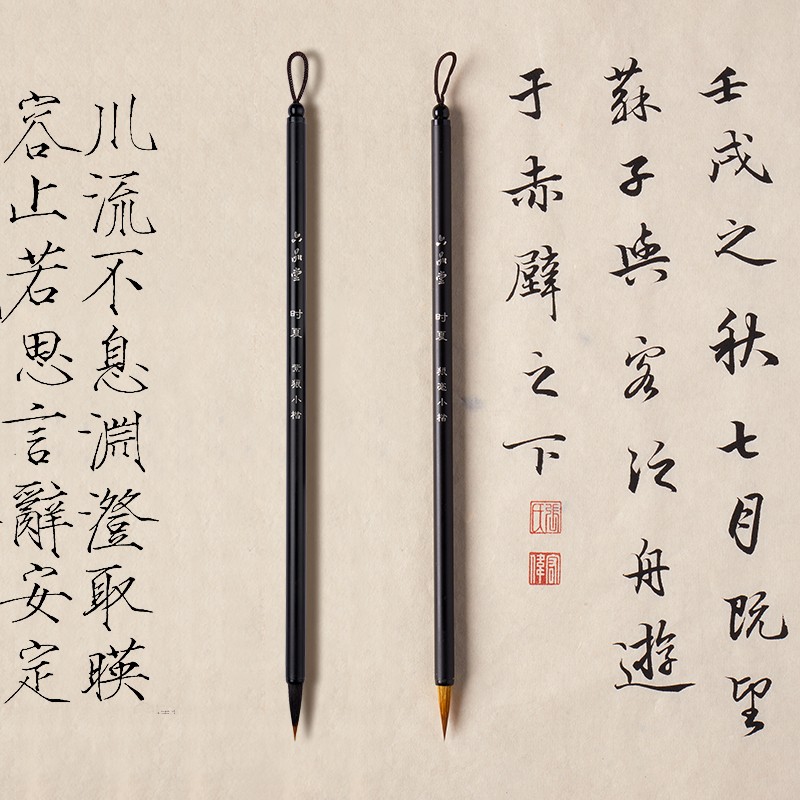 壬戌之秋七月既望
蘇子與客泛舟遊
于赤壁之下
張氏
六品堂 时夏 狼毫小楷
六品堂 时夏 紫狼小楷
川流不息淵澄取暎
容止若思言辭安定